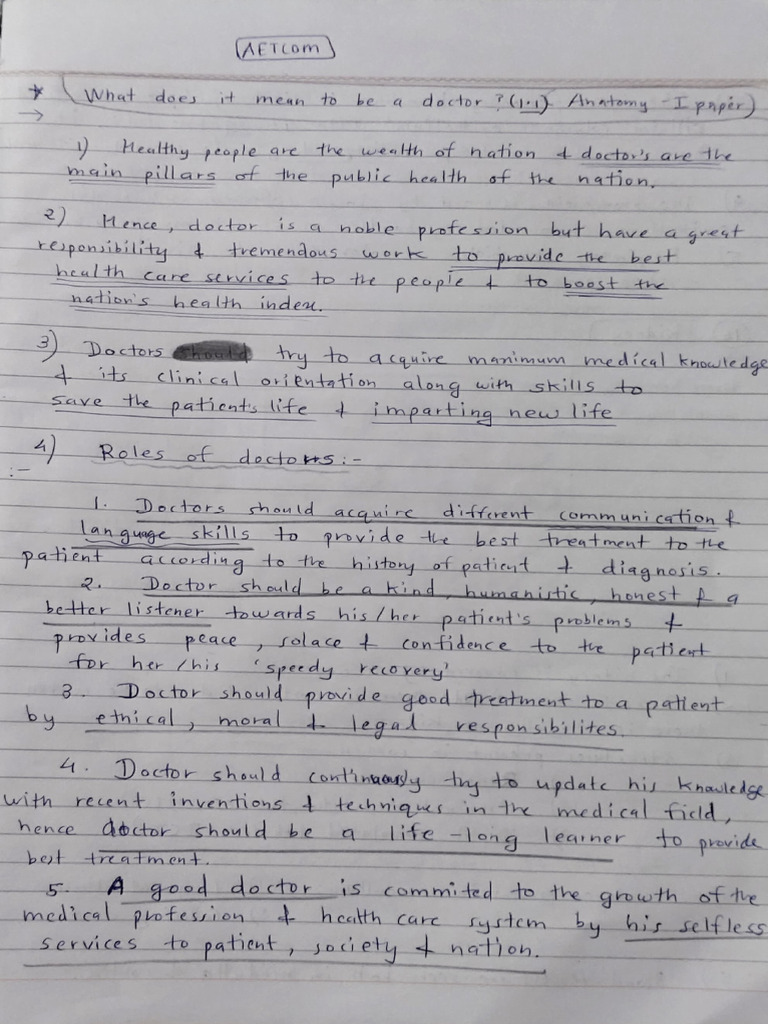 AETCOM
* What does it mean to be a doctor? (1.1) Anatomy - I paper)
→
1) Healthy people are the wealth of nation & doctor's are the
main pillars of the public health of the nation.
2) Hence, doctor is a noble profession but have a great
responsibility & tremendous work to provide the best
health care services to the people & to boost the
nation's health index.
3) Doctors should try to acquire maximum medical knowledge
& its clinical orientation along with skills to
save the patients life & imparting new life
4) Roles of doctors:-
:-
1. Doctors should acquire different communication &
language skills to provide the best treatment to the
patient according to the history of patient & diagnosis.
2. Doctor should be a kind, humanistic, honest & a
better listener towards his/her patient's problems &
provides peace, solace & confidence to the patient
for her/his 'speedy recovery'
3. Doctor should provide good treatment to a patient
by ethical, moral & legal responsibilites.
4. Doctor should continuously try to update his knowledge
with recent inventions & techniques in the medical field,
hence doctor should be a life-long learner to provide
best treatment.
5. A good doctor is commited to the growth of the
medical profession & health care system by his selfless
services to patient, society & nation.